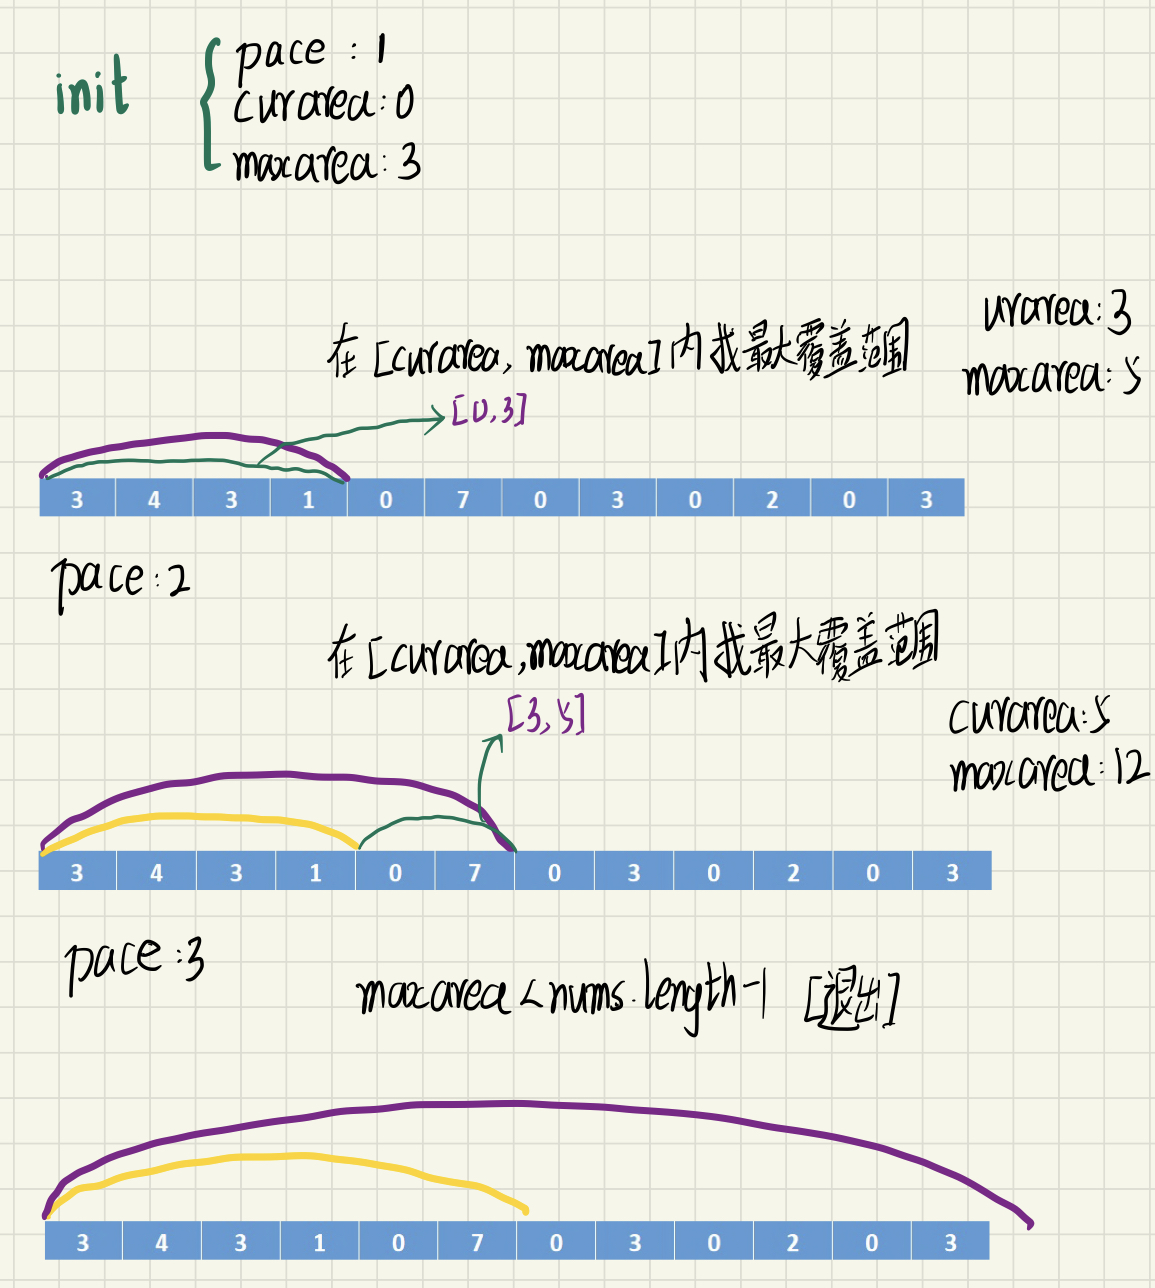 init
pace : 1
curarea: 0
maxarea: 3
在 [curarea, maxarea] 内找最大覆盖范围
urarea: 3
maxarea: 5
[0,3]
3 4 3 1 0 7 0 3 0 2 0 3
pace: 2
在 [curarea, maxarea] 内找最大覆盖范围
[3,5]
curarea: 5
maxarea: 12
3 4 3 1 0 7 0 3 0 2 0 3
pace: 3
maxarea < nums.length-1 [退出]
3 4 3 1 0 7 0 3 0 2 0 3